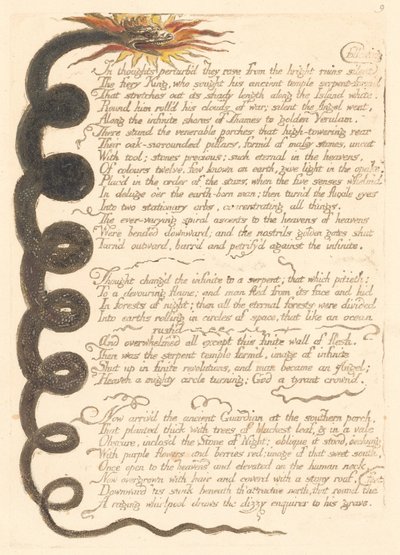 9
In thoughts perturb'd they rose from the bright ruins silent
The fiery King, who sought his ancient temple serpent-form'd
That stretches out its shady length along the Island white.
Round him roll'd his clouds of war; silent the Angel went,
Along the infinite shores of Thames to golden Verulam.
There stand the venerable porches that high-towering rear
Their oak-surrounded pillars, form'd of massy stones, uncut
With tool; stones precious; such eternal in the heavens,
Of colours twelve, few known on earth, give light in the opake,
Plac'd in the order of the stars, when the five senses whelm'd
In deluge o'er the earth-born man; then turn'd the fluxile eyes
Into two stationary orbs, concentrating all things.
The ever-varying spiral ascents to the heavens of heavens
Were bended downward, and the nostrils golden gates shut
Turn'd outward, barr'd and petrify'd against the infinite.
Thought chang'd the infinite to a serpent; that which pitieth:
To a devouring flame; and man fled from its face and hid
In forests of night; then all the eternal forests were divided
Into earths rolling in circles of space, that like an ocean
rush'd
And overwhelmed all except this finite wall of flesh.
Then was the serpent temple form'd, image of infinite
Shut up in finite revolutions, and man became an Angel;
Heaven a mighty circle turning; God a tyrant crown'd.
Now arriv'd the ancient Guardian at the southern porch,
That planted thick with trees of blackest leaf, & in a vale
Obscure, inclos'd the Stone of Night; oblique it stood, o'erhung
With purple flowers and berries red; image of that sweet south,
Once open to the heavens and elevated on the human neck,
Now overgrown with hair and coverd with a stony roof,
Downward 'tis sunk beneath th' attractive north, that round the feet
A raging whirlpool draws the dizzy enquirer to his grave.